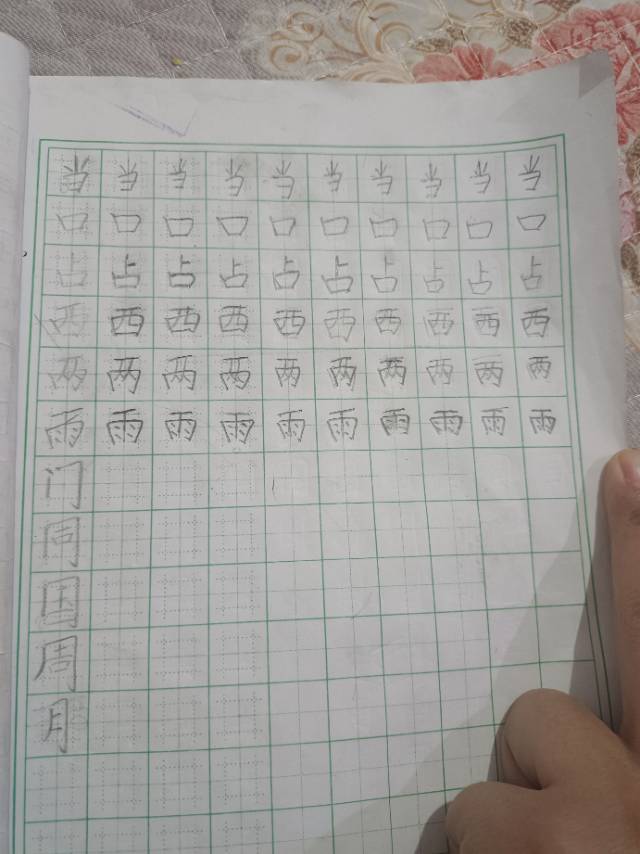 当当当当当当当当当当
口口口口口口口口口口
占占占占占占占占占占
西西西西西西西西西西
两两两两两两两两两两
雨雨雨雨雨雨雨雨雨雨
门
同
国
周
月